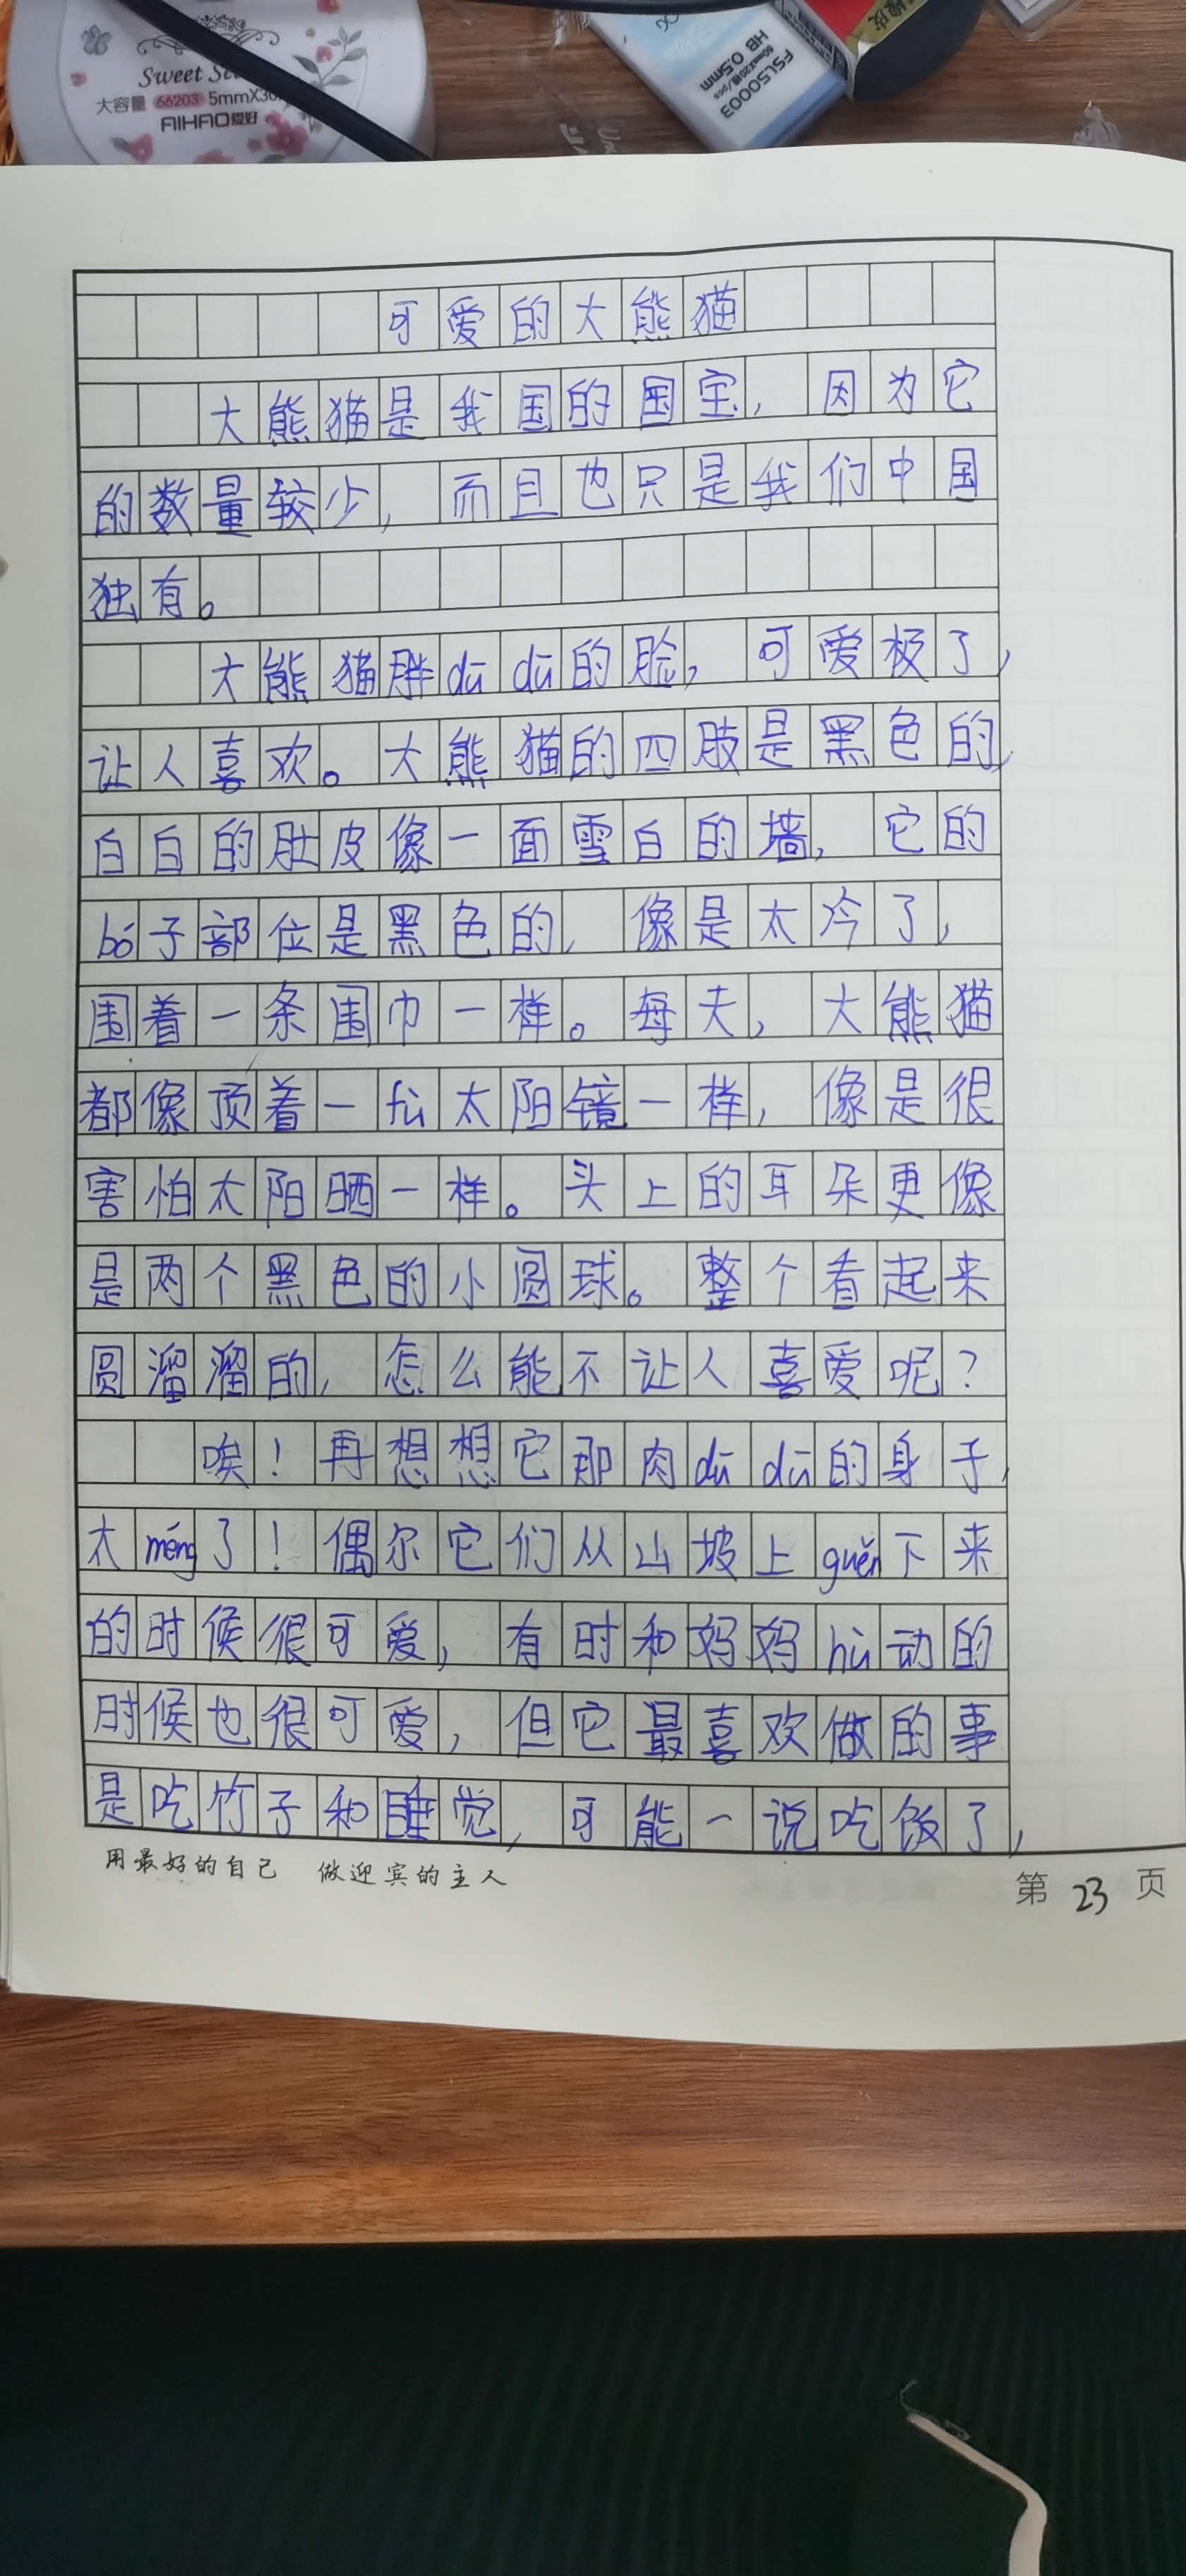 Sweet
大容量 66203 5mmX30
AIHAO爱好
FSL50003
HB 0.5mm
可爱的大熊猫
大熊猫是我国的国宝，因为它
的数量较少，而且也只是我们中国
独有。
大熊猫胖dū dū的脸，可爱极了，
让人喜欢。大熊猫的四肢是黑色的，
白白的肚皮像一面雪白的墙，它的
bó子部位是黑色的，像是太冷了，
围着一条围巾一样。每天，大熊猫
都像顶着一fù太阳镜一样，像是很
害怕太阳晒一样。头上的耳朵更像
是两个黑色的小圆球。整个看起来
圆溜溜的，怎么能不让人喜爱呢？
唉！再想想它那肉dū dū的身子，
太méng了！偶尔它们从山坡上guěn下来
的时候很可爱，有时和妈妈hù动的
时候也很可爱，但它最喜欢做的事
是吃竹子和睡觉，可能一说吃饭了，
用最好的自己 做迎宾的主人
第 23 页